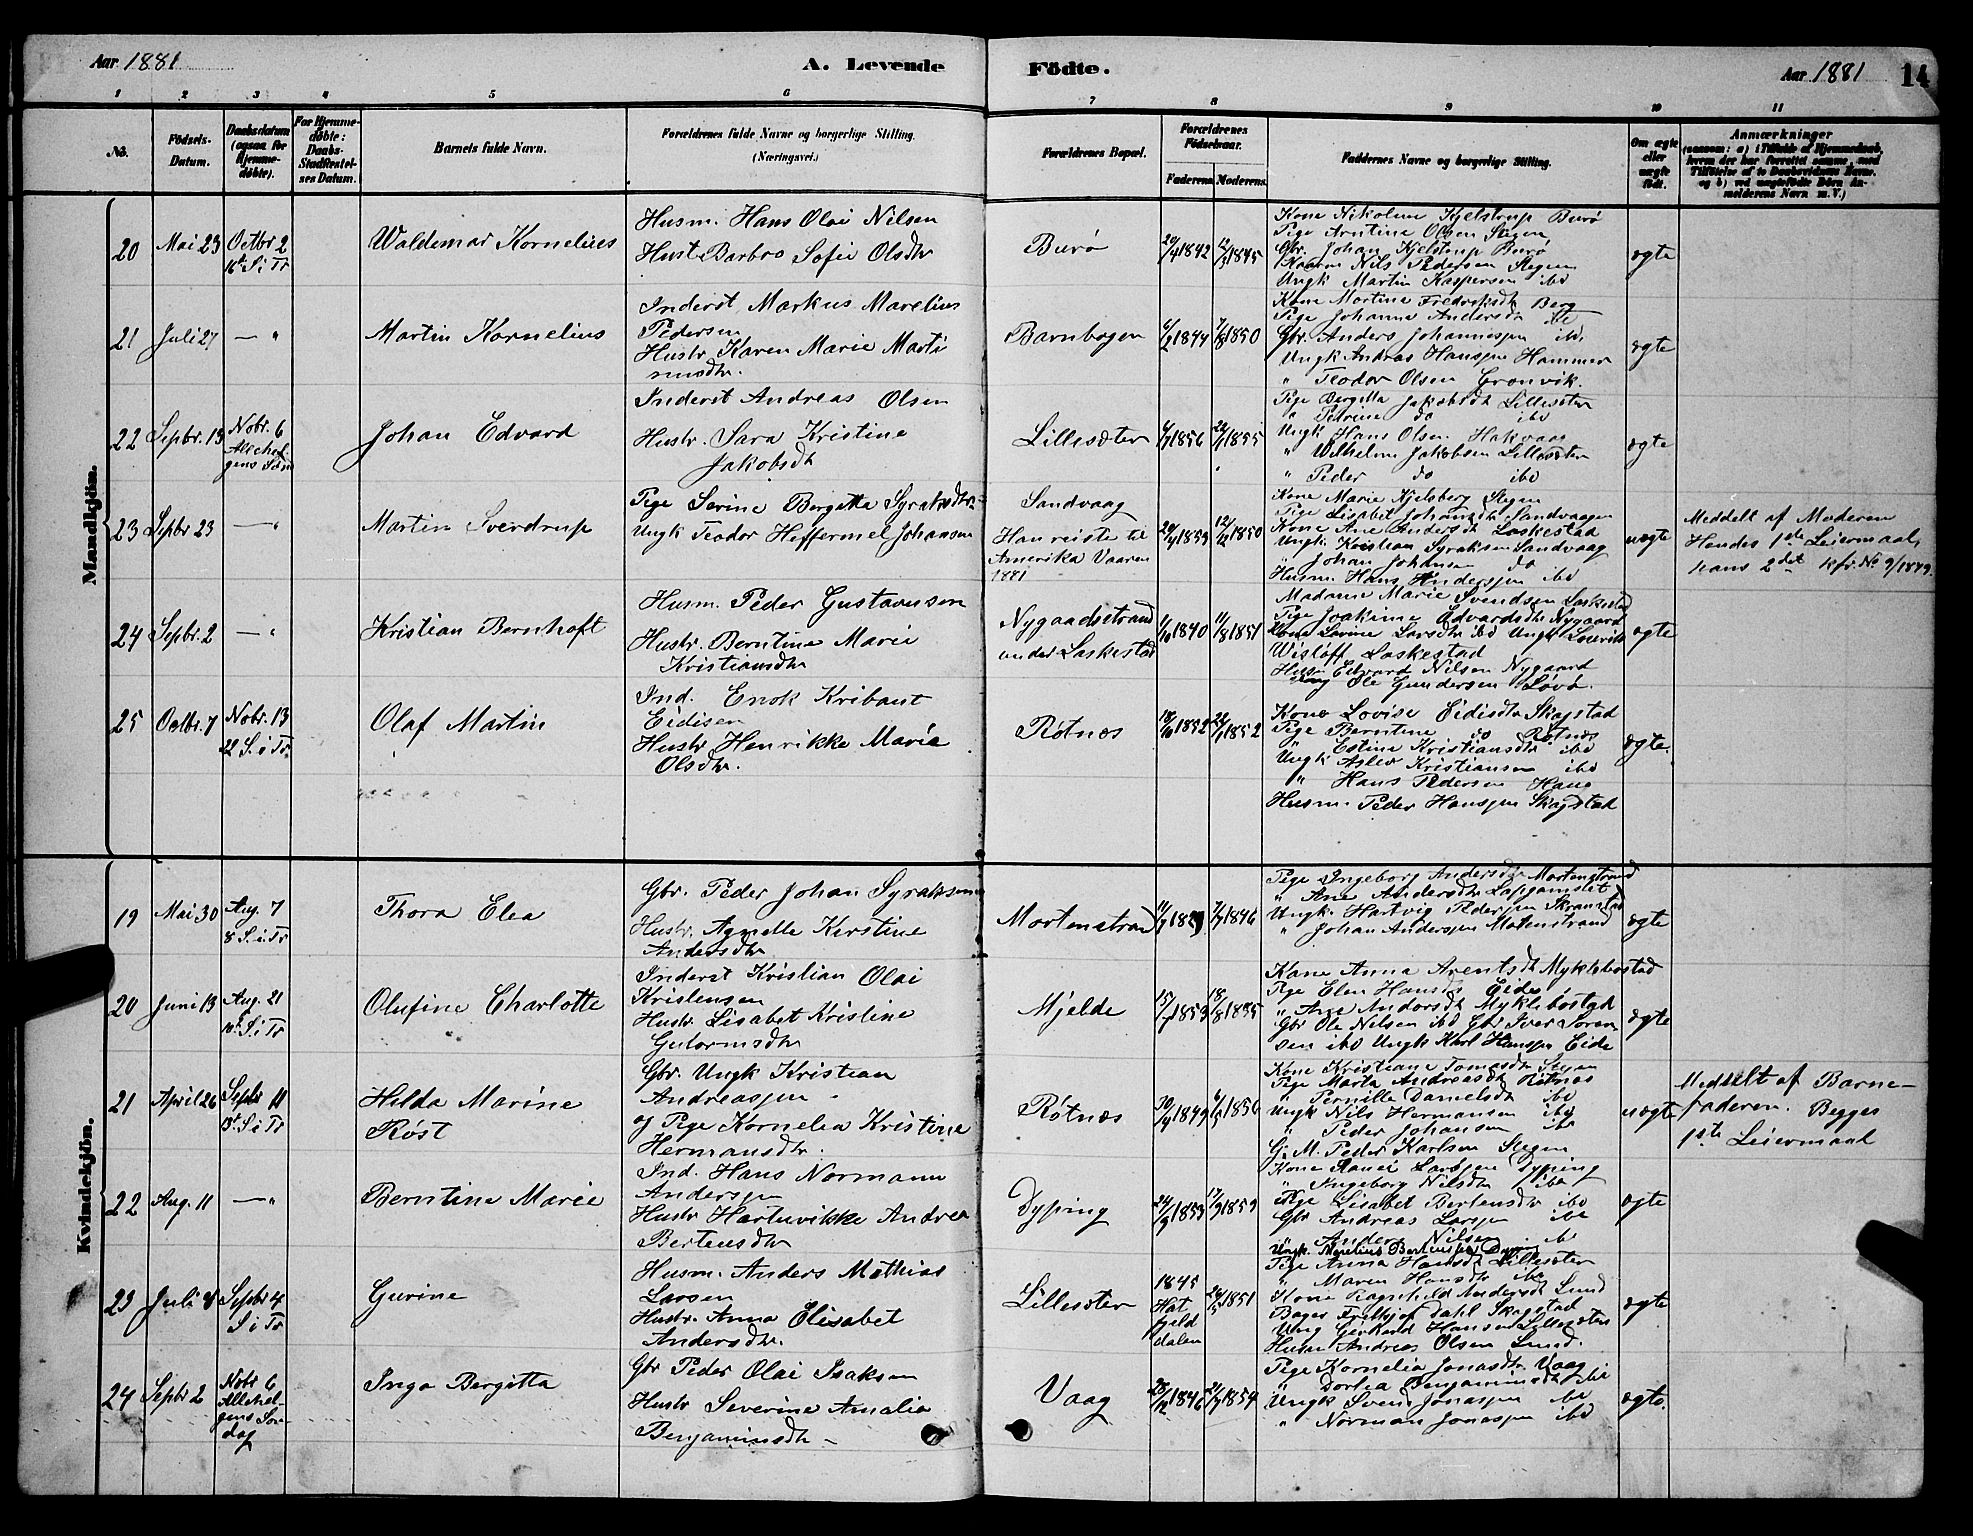 Aar 1881
A. Levende
Födte.
Aar 1881
14
1 2 3 4 5 6 7 8 9 10 11
No.
Födsels-Datum.
Daabsdatum (ogsaa for Hjemme-døbte).
For Hjemme-døbte: Daabs-Stadfæstel-ses Datum.
Barnets fulde Navn.
Forældrenes fulde Navne og borgerlige Stilling. (Næringsvei.)
Forældrenes Bopæl.
Forældrenes Födselsaar.
Faderens Moderens
Faddernes Navne og borgerlige Stilling.
Om ægte eller uægte født.
Anmærkninger
Mandkjön.
20 Mai 23 Octbr 2
16de S. i Tr
Waldemar Kornelius
Husm. Hans Olai Nilsen
Hust. Barbro Sofie Olsdtr
Burø
20/4 1842 12/3 1845
Kone Nikoline Kjelstrup Burø
Pige Arntine Olsen Stegen
Gbr. Johan Kjelstrup Burø
Nils Pedersen Stegen
Ungk Martin Kaspersen ibd
ægte
21 Juli 27 — "
Martin Kornelius
Inderst Markus Marelius
Pedersen
Hustr. Karen Marie Marti
nusdtr.
Barnbogen
6/2 1844 7/8 1850
Kone Martine Fredriksdtr Berg
Pige Johanna Andersdtr
Gbr. Anders Johannesen ibd
Ungk Andreas Hanssen Hammer
" Teodor Olsen Grønvik.
ægte
22 Sepbr. 13 Nobr. 6
Allehel-
gens Søn
Johan Edvard
Inderst Andreas Olsen
Hustr. Sara Kristine
Jakobsdtr
Lillesæter
1856 1855
Pige Bergitta Jakobsdtr Lillesæter
" Petrine do ibd
Ungk Hans Olsen Hakvaag
" Wilhelm Jakobsen Lillesæter
" Peder do ibd
ægte
23 Sepbr 23 — "
Martin Sverdrup
Pige Serine Bergitta Syraksdtr
Ungk Teodor Heffermel Johansen
Sandvaag
Han reiste til
Amerika Vaaren
1881
20/4 1859 12/12 1850
Kone Marie Kjelsberg Stegen
Pige Lisabet Johansdtr Sandvaagen
Kone Ane Andersdtr Laskestad
Ungk. Kristian Syraksen Sandvaag
Johan Johansen do
Husm. Hans Anderssen ibd
uægte
Meddelt af Moderen
Hendes 1ste Leiermaal,
hans 2det kfr. No 9/1879.
24 Sepbr. 2 — "
Kristian Bernhoft
Husm. Peder Gustavsen
Hustr. Berntine Marie
Kristiansdtr
Nygaardsstrand
under Laskestad
1/10 1840 11/8 1851
Madame Marie Svendsen Laskestad
Pige Joakime Edvardsdtr Nygaard
Kone Lovise Larsdtr ibd Ungk Laurits
Wisløff Laskestad
Husm Edvard Nilsen Nygaard
Ung Ole Gundersen Løvø.
ægte
25 Octbr. 7 Nobr. 13
22 S. i Tr.
Olaf Martin
Ind. Enok Kribant
Eidisen
Hustr Henrikke Marie
Olsdtr.
Røtnæs
1852 1852
Kone Lovise Eidisdtr Skagstad
Pige Berntine do Røtnæs
" Estine Kristiansdtr ibd
Ungk Aslev Kristiansen ibd
" Hans Pedersen Haug
Husm. Peder Hanssen Skagstad
ægte.
Kvindekjön.
19 Mai 30 Aug. 7
8 S. i Tr
Thora Elea
Gbr. Peder Johan Syraksen
Hustr. Agnelle Kirstine
Andersdtr
Mortenstrand
7/7 1846
Pige Ingeborg Andersdtr Mortenstrand
" Ane Andersdtr
Ungk. Hartvig Pederssen Skranstad
" Johan Anderssen Mortenstrand
ægte
20 Juni 13 Aug. 21
10de S. i Tr
Olufine Charlotte
Inderst Kristian Olai
Kristensen
Hustr Lisabet Kristine
Gutormsdtr
Mjelde
15/7 1853 18/8 1855
Kone Anna Arentsdtr Myklebostad
Pige Elen Hansdtr Eide
" Ane Andersdtr Myklebostad
Gbr Ole Nilsen ibd Gbr Iver Søren
sen ibd Ungk Karl Hanssen Eide
ægte
21 April 26 Sepbr 11
13de S. i Tr
Hilda Marine
Røst
Gbr. Ungk Kristian
Andreassen
og Pige Kornelia Kristine
Hermansdtr.
Røtnæs
30/4 1849 6/5 1856
Kone Kristiane Tomasdtr Stegen
Pige Marta Andreasdtr Røtnæs
" Pernille Danielsdtr ibd
Ungk Nils Hermansen ibd
" Peder Johansen ibd
G. M. Peder Karlsen Stegen
uægte
Meddelt af Barne-
faderen. Begges
1ste Leiermaal
22 Aug. 11 — "
Berntine Marie
Ind. Hans Normann
Anderssen
Hustr Hartvikke Andrea
Bertensdtr
Dyping
24/9 1853 17/9 1859
Kone Larssen Dyping
" Ingeborg Nilsdtr ibd
Pige Lisabet Bertensdtr ibd
Gbr Andreas Larssen ibd
" Anders Nilsen ib
Ungk. Bertenssen Dyping
ægte
23 Juli 8 Sepbr 4
S i Tr
Gurine
Husm. Anders Mathias
Larsen
Hustr. Anna Elisabet
Andersdtr.
Lillesæter
1845
Hat
fjeld
dalen
24/5 1851
Pige Anna Hansdtr Lillesæter
" Maren Hansdtr ibd
Kone Ragnhild Andersdtr Lund
Bager Fridtjof Dahl Skagstad
Ung Gerhard Hansen Lillesæter
Husm Andreas Olsen Lund.
ægte
24 Sepbr 2 Nobr 6
Allehel-
gens Søn
dag
Inga Bergitta
Gbr Peder Olai Isaksen
Hustr Severine Amalia
Benjaminsdtr —
Vaag
28/12 1846 21/7 1854
Pige Kornelia Jonasdtr Vaag
" Dortea Benjaminsdtr ibd
Ungk Svend Jonassen ibd
" Norman Jonassen ibd
ægte.